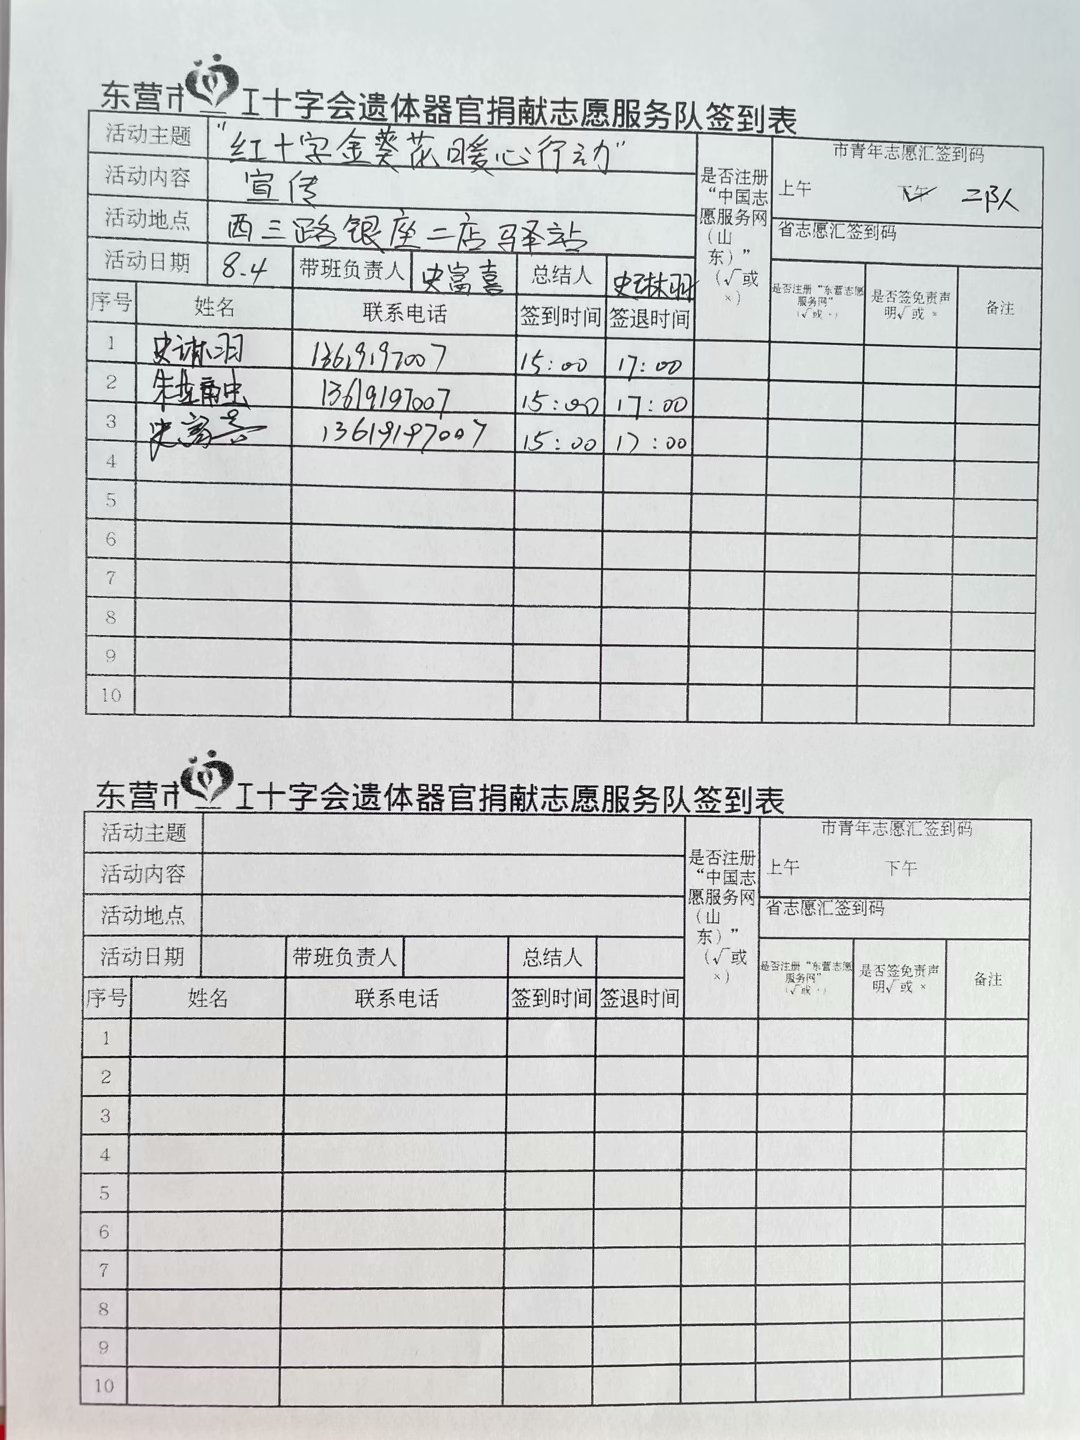 东营市红十字会遗体器官捐献志愿服务队签到表
活动主题 "红十字金葵花暖心行动" 是否注册“中国志愿服务网（山东）”（√或×） 市青年志愿汇签到码
活动内容 宣传 上午 下午 √ 二队人
活动地点 西三路银座二店驿站 省志愿汇签到码
活动日期 8.4 带班负责人 史富喜 总结人 史琳羽 是否注册“东营志愿服务网”（√或×） 是否签免责声明√或× 备注
序号 姓名 联系电话 签到时间 签退时间
1 史琳羽 13619197007 15:00 17:00
2 13619197007 15:00 17:00
3 史富喜 13619197007 15:00 17:00
4
5
6
7
8
9
10
东营市红十字会遗体器官捐献志愿服务队签到表
活动主题 是否注册“中国志愿服务网（山东）”（√或×） 市青年志愿汇签到码
活动内容 上午 下午
活动地点 省志愿汇签到码
活动日期 带班负责人 总结人 是否注册“东营志愿服务网”（√或×） 是否签免责声明√或× 备注
序号 姓名 联系电话 签到时间 签退时间
1
2
3
4
5
6
7
8
9
10